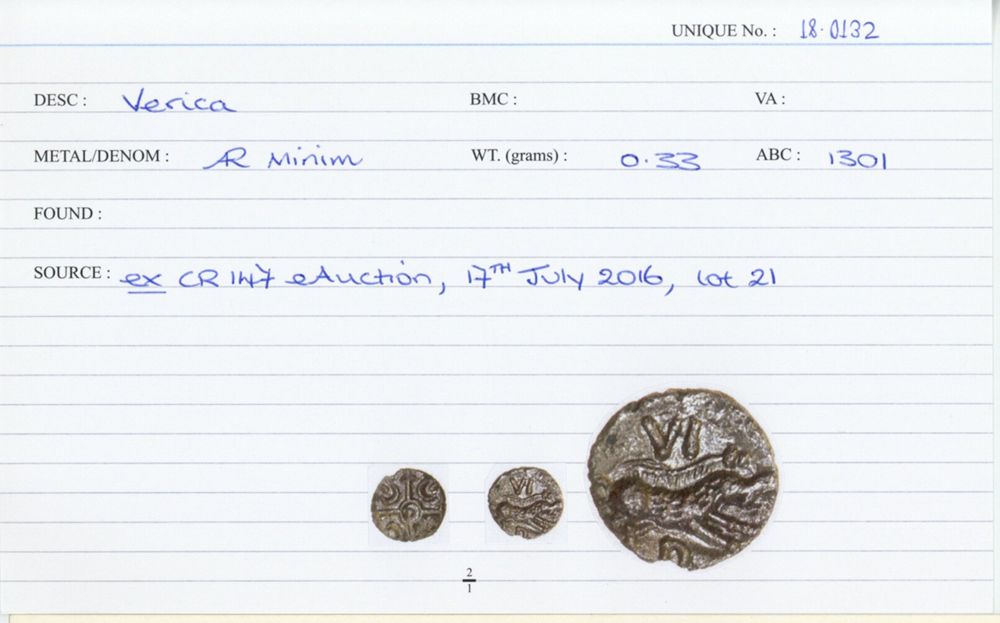 UNIQUE No. : 18·0132
DESC : Verica BMC : VA :
METAL/DENOM : AR Minim WT. (grams) : 0·33 ABC : 1301
FOUND :
SOURCE : ex CR 147 eAuction, 17TH July 2016, lot 21
VI
VI
2
1